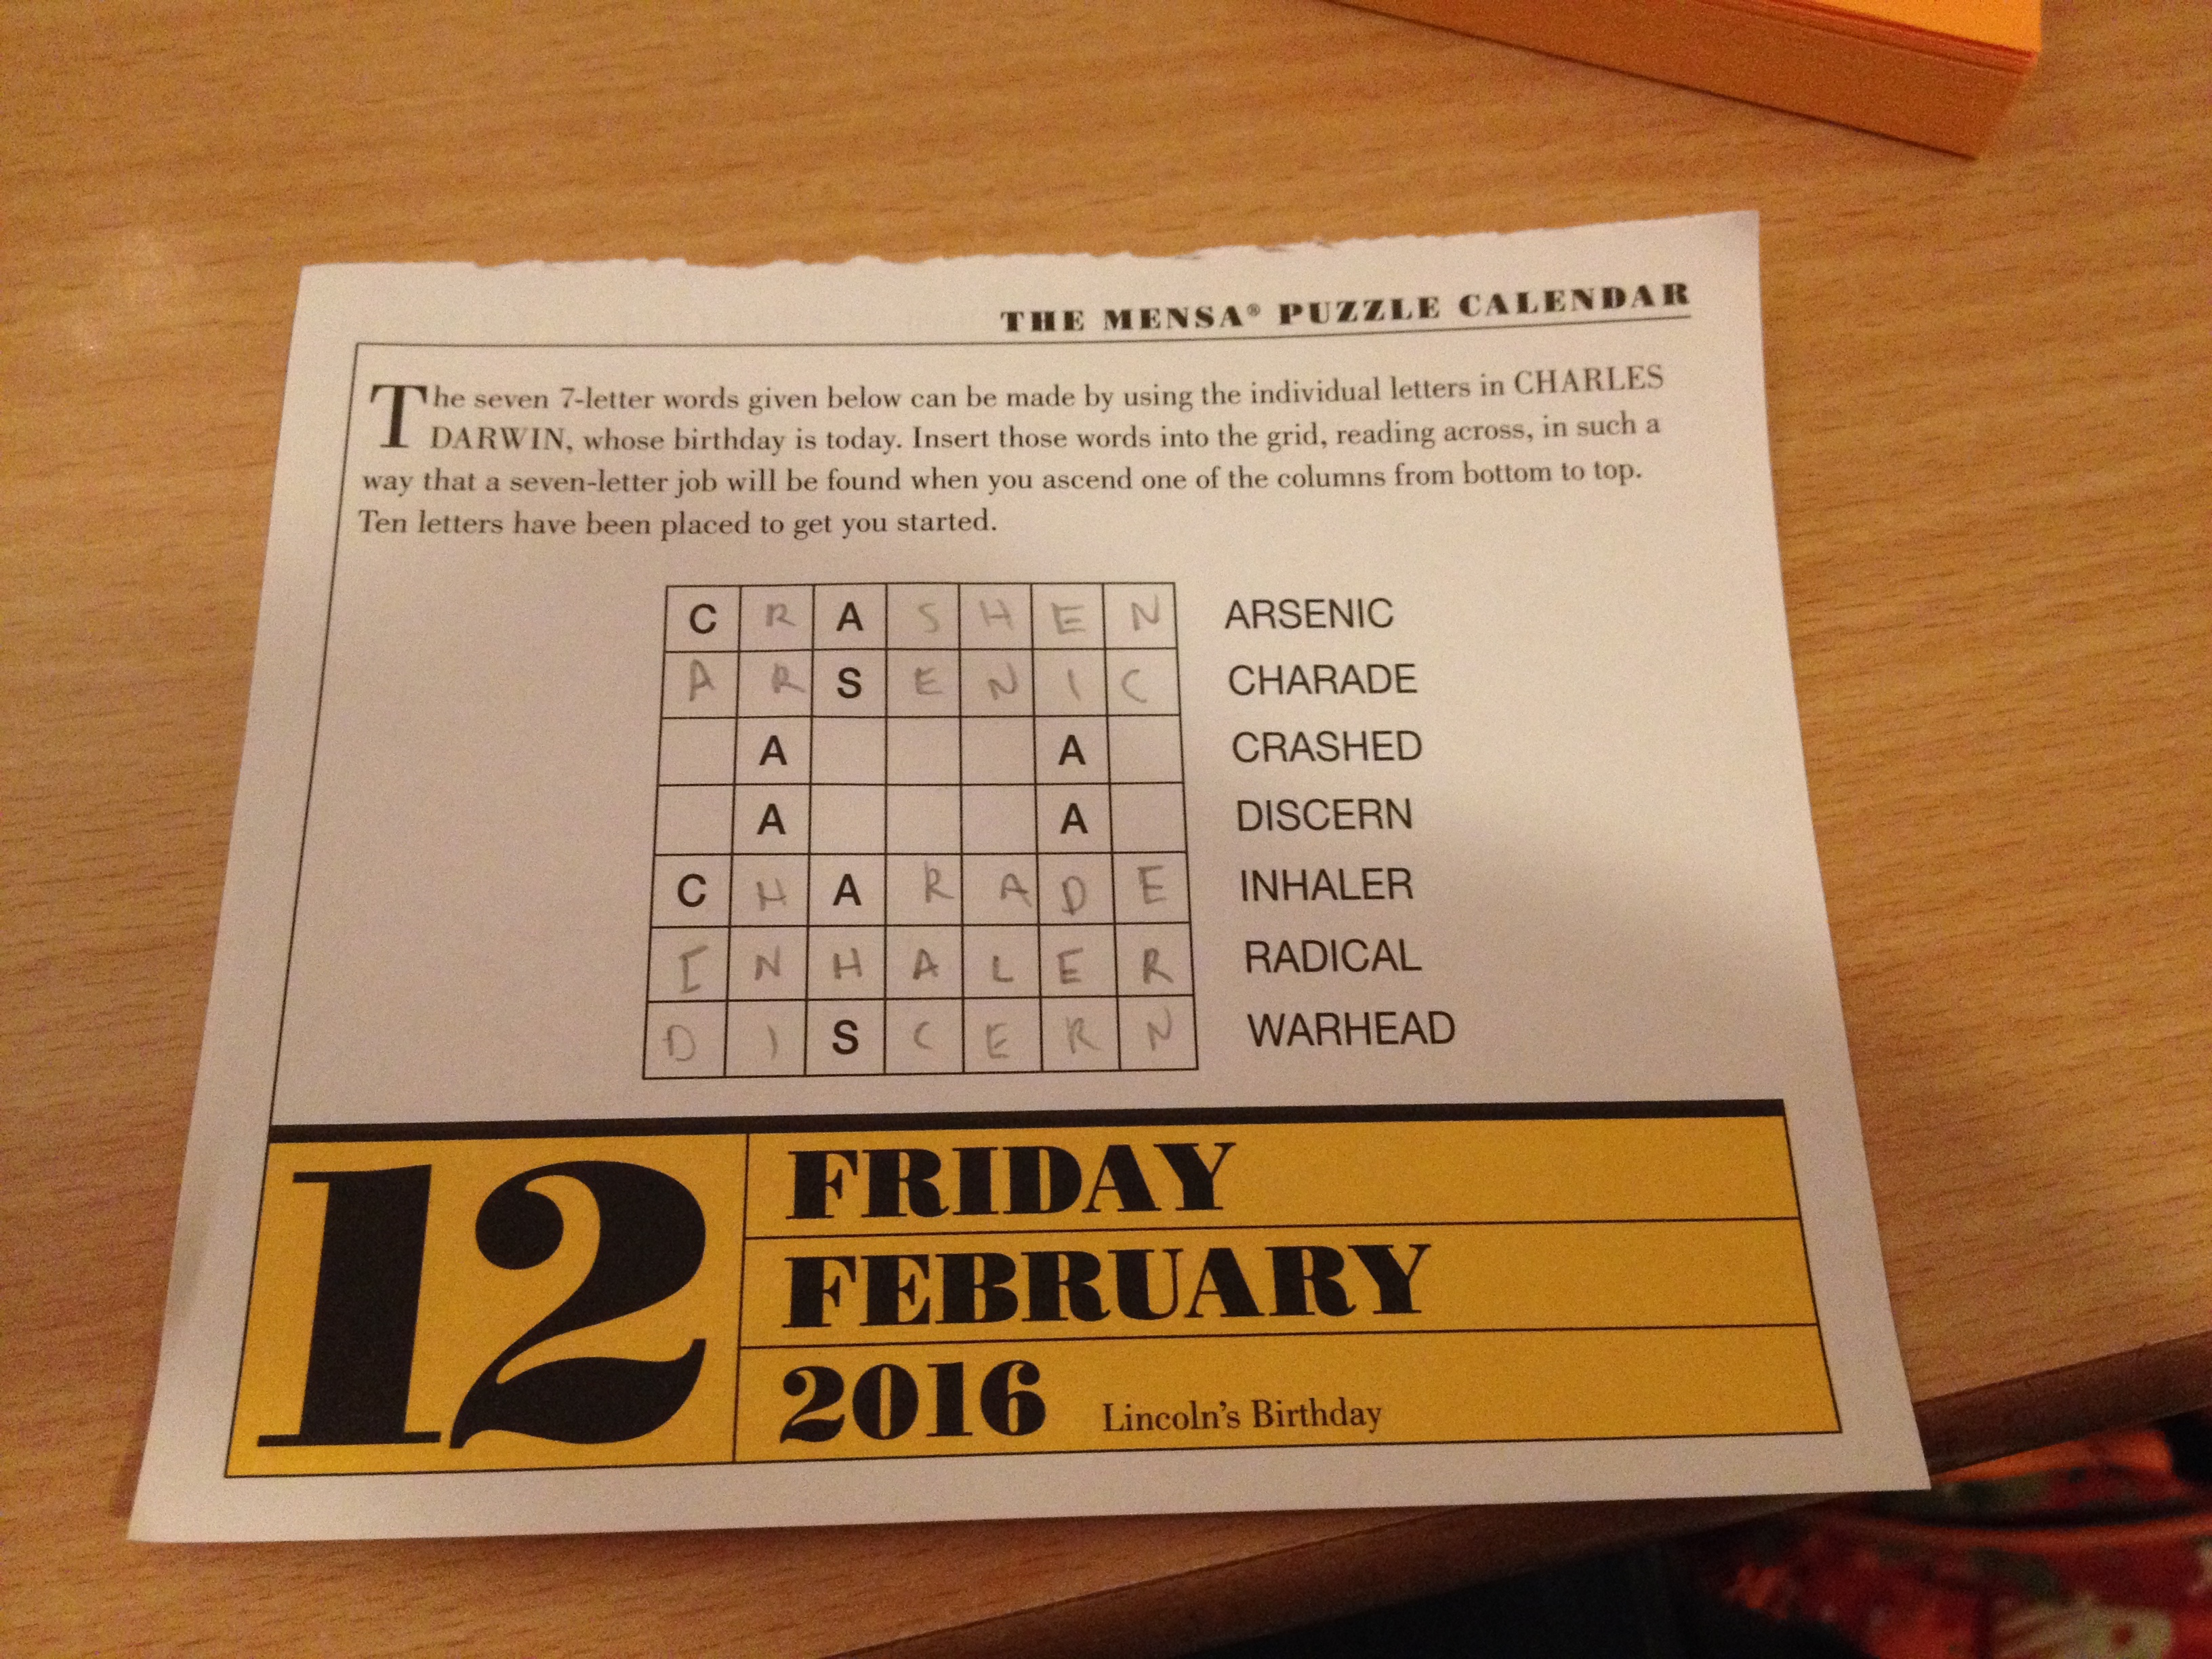 THE MENSA® PUZZLE CALENDAR
The seven 7-letter words given below can be made by using the individual letters in CHARLES
DARWIN, whose birthday is today. Insert those words into the grid, reading across, in such a
way that a seven-letter job will be found when you ascend one of the columns from bottom to top.
Ten letters have been placed to get you started.
C R A S H E N ARSENIC
A R S E N I C CHARADE
A A CRASHED
A A DISCERN
C H A R A D E INHALER
I N H A L E R RADICAL
D I S C E R N WARHEAD
12 FRIDAY
FEBRUARY
2016 Lincoln's Birthday